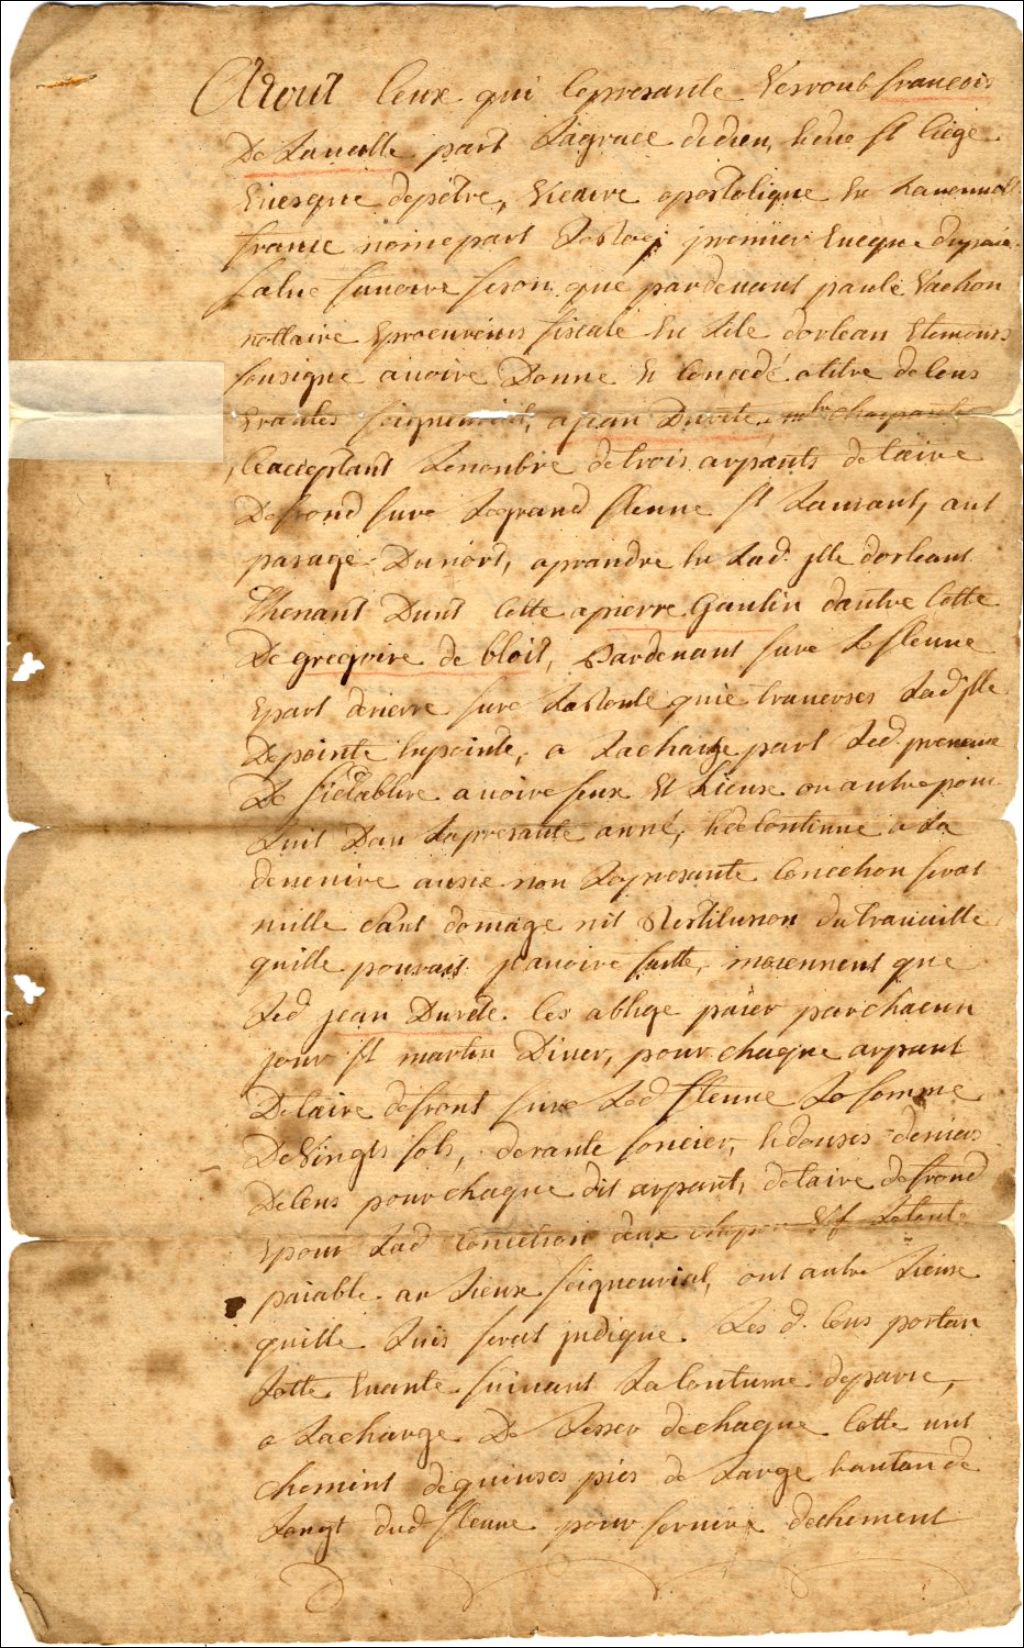 Atout Ceux qui lepresante Verront francois
De Lavalle part Lagrace dedieu, hedu st Ciege
Evesque depétre, Vicaire apostolique En Lanouvelle
france nomepart LeRoy premier Eveque dupais
salue savoire feson que pardevant paule Vachon
nottaire Eprocureurs fiscale En Lile dorlean Etemoins
sousigne avoire Donne Et Concedé atitre de Cens
Erantes seigneurial, ajean Durete, mtr charpantie
Ceacceptant Lenonbre detrois arpants de taire
Defrond sure Legrand fleuve st Laurant, aut
pasage Dunort, aprandre En Lad. jlle dorleans
Thenant Dunt Cotte apierre Gaulin dautre Cotte
De gregoire de bloit, Pardevant sure Le fleuve
Epart derierre sure LaRoute quie traverses Lad jlle
Depointe enpointe, a Lacharge part Led. preneure
De siétablire avoire feux Et Lieux ou autre pour
Luit Dan Lapresante anné, hede Continue a La
devenire ausie non Lapresante Concetion serat
nulle Sant domage nit Restitusion du travaille
quille pourait javoire faitte, moiennent que
Led jean Durete. Ces ablige païer parchacun
jour st martin Diver, pour chaque arpant
De taire defront sure Led fleuve La somme
De Vingts sols, de rante foncier, hedouses deniers
De Cens pour chaque dit arpant, detaire defrond
Epour Lad concetion deux chapon Vif Letout
païable au Lieux seigneurial, out autre Lieux
quille Luis serat jndique. Les d. Cens portan
Lotte Evante suivant La Coutume deparie,
a Lacharge De Lesser dechaque Cotte unt
chemint dequinses pies de Large hautan de
Longt dud fleuve pour servire dechement